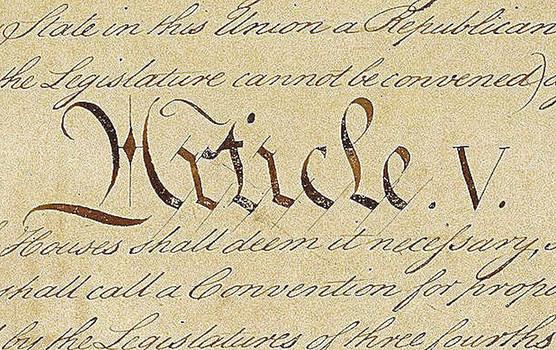 State in this Union a Republican
the Legislature cannot be convened)
Article. V.
Houses shall deem it neceſsary,
shall call a Convention for propo
by the Legislatures of three fourths